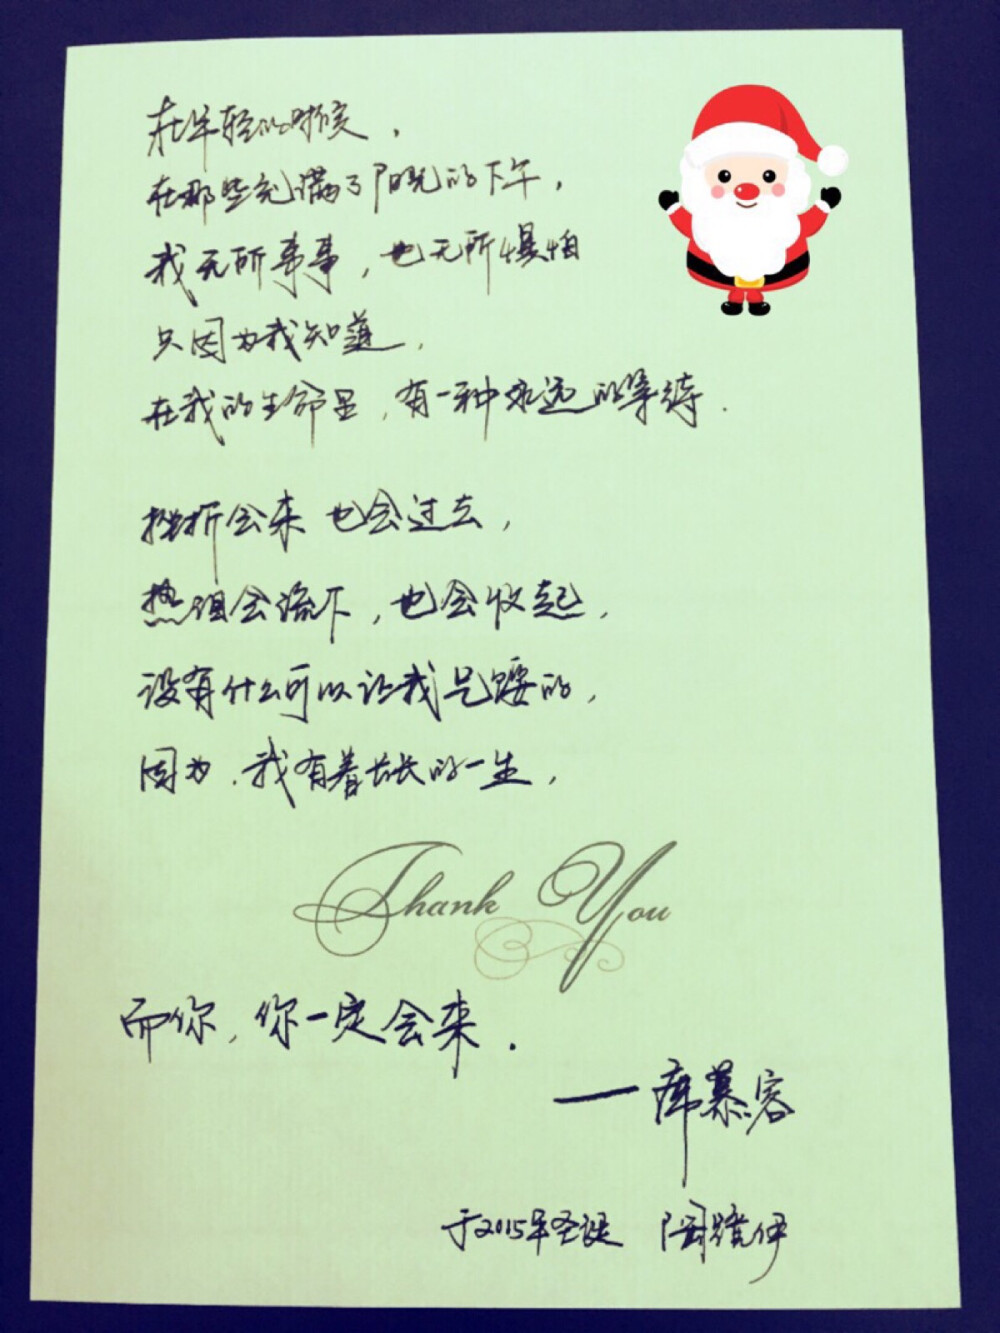 在年轻的时候，
在那些充满了阳光的下午，
我无所事事，也无所惧怕
只因为我知道，
在我的生命里，有一种永远的等待．
挫折会来 也会过去，
热泪会流下，也会收起，
没有什么可以让我气馁的，
因为，我有着长长的一生，
Thank You
而你，你一定会来．
——席慕容
于2015年圣诞